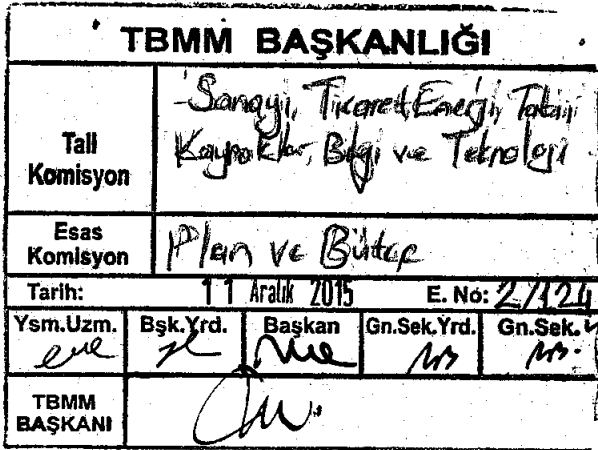 TBMM BAŞKANLIĞI
Tali
Komisyon
-Sanayi, Ticaret, Enerji, Tabii
Kaynaklar, Bilgi ve Teknoloji
Esas
Komisyon
Plan ve Bütçe
Tarih: 11 Aralık 2015 E. No: 2/124
Ysm.Uzm. Bşk.Yrd. Başkan Gn.Sek.Yrd. Gn.Sek.
TBMM
BAŞKANI